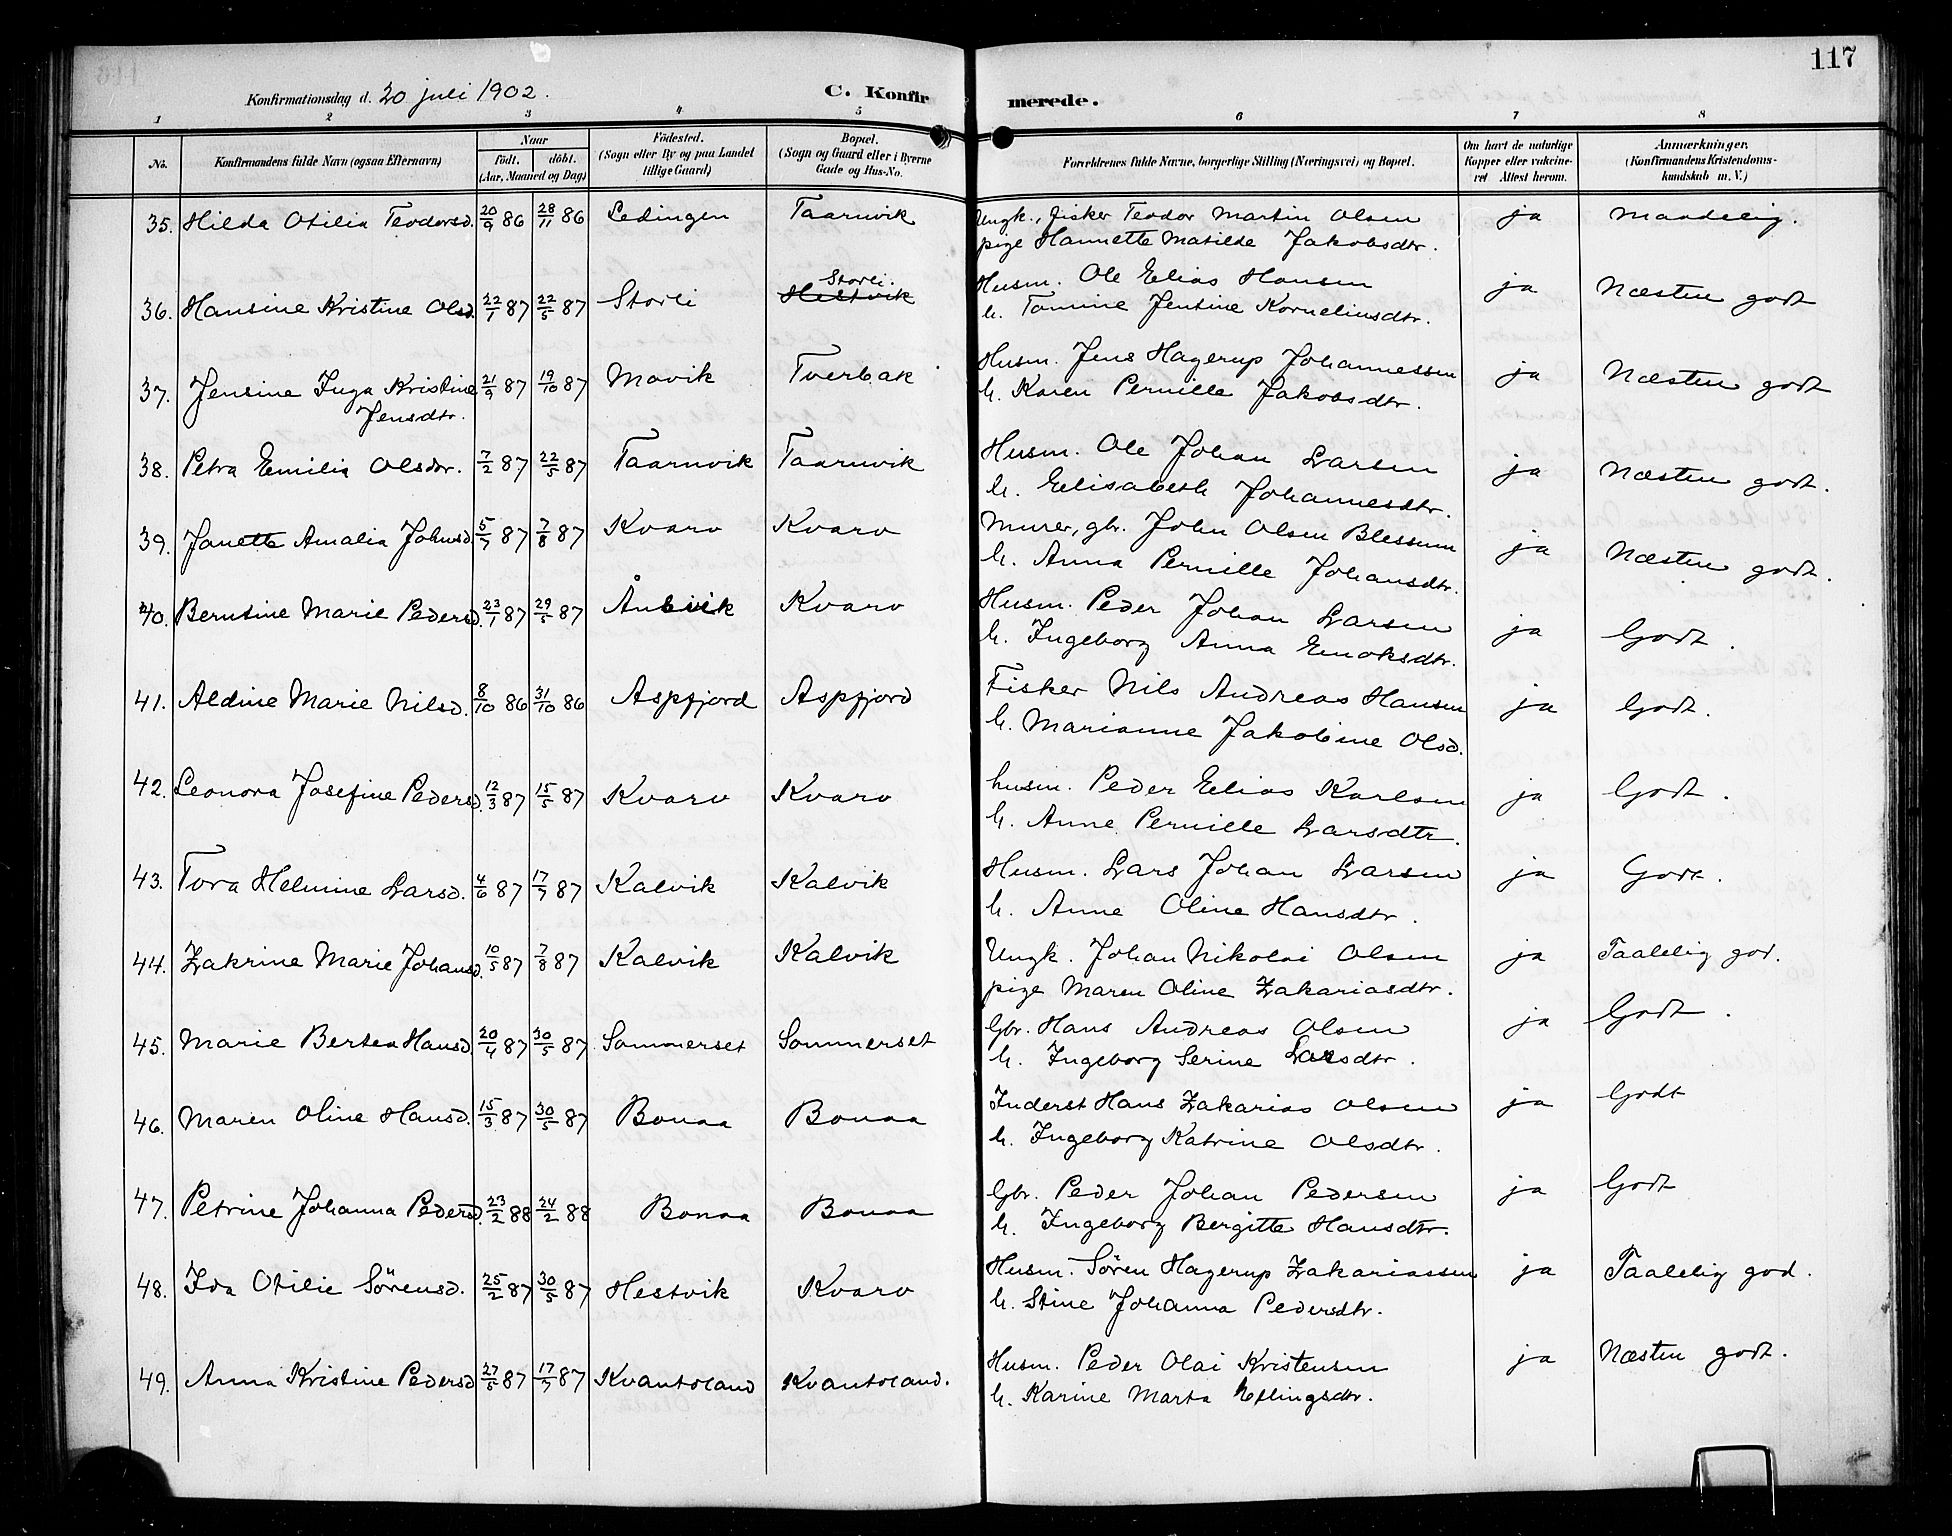 117
Konfirmationsdag d. 20 juli 1902. C. Konfirmerede.
1 2 3 4 5 6 7 8
No. Konfirmandens fulde Navn (ogsaa Efternavn) Naar födt. döbt. (Aar, Maaned og Dag) Födested. (Sogn eller By og paa Landet tillige Gaard) Bopæl. (Sogn og Gaard eller i Byerne Gade og Hus-No. Forældrenes fulde Navne, borgerlige Stilling (Næringsvei) og Bopæl. Om havt de naturlige Kopper eller vakcineret Attest herom. Anmærkninger. (Konfirmandens Kristendomskundskab m. V.)
35. Hilda Otilia Teodorsd. 20/9 86 28/11 86 Lødingen Taarnvik Ungk., fisker Teodor Martin Olsen ja maadelig.
pige Hannette Matilde Jakobsdtr.
36. Hansine Kristine Olsd. 22/1 87 22/5 87 Storli Hestvik Storli. Husm. Ole Elias Hansen ja Næsten godt
h. Tomine Jensine Korneliusdtr.
37. Jensine Inga Kristine 21/9 87 19/10 87 Movik Tverbak Husm. Jens Hagerup Johannessen ja Næsten godt
Jensdtr. h. Karen Pernille Jakobsdtr.
38. Petra Emilia Olsdtr. 7/2 87 22/5 87 Taarnvik Taarnvik Husm. Ole Johan Larsen ja Næsten godt.
h. Elisabeth Johannesdtr.
39. Janette Amalia Johnsd. 5/7 87 7/8 87 Kvarv Kvarv Murer, gbr. John Olsen Blessum ja Næsten godt.
h. Anna Pernille Johansdtr.
40. Berntine Marie Pedersd. 23/1 87 29/5 87 Kvarv Husm. Peder Johan Larsen ja Godt.
h. Ingeborg Anna Enoksdtr.
41. Aldine Marie Nilsd. 8/10 86 31/10 86 Aspfjord Aspfjord Fisker Nils Andreas Hansen ja Godt.
h. Marianne Jakobine Olsd.
42. Leonora Josefine Pedersd. 12/3 87 15/5 87 Kvarv Kvarv husm. Peder Elias Karlsen ja Godt.
h. Anne Pernille Larsdtr.
43. Tora Helmine Larsd. 4/6 87 17/7 87 Kalvik Kalvik Husm. Lars Johan Larsen ja Godt.
h. Anne Oline Hansdtr.
44. Zakrine Marie Johansd. 10/5 87 7/8 87 Kalvik Kalvik Ungk. Johan Nikolai Olsen ja Taalelig god.
pige Maren Oline Zakariasdtr.
45. Marie Bertea Hansd. 20/4 87 30/5 87 Sommerset Sommerset Gbr. Hans Andreas Olsen ja Godt.
h. Ingeborg Serine Larsdtr.
46. Maren Oline Hansd. 15/3 87 30/5 87 Bonaa Bonaa Inderst Hans Zakarias Olsen ja Godt
h. Ingeborg Katrine Olsdtr.
47. Petrine Johanna Pedersd. 23/2 88 24/2 88 Bonaa Bonaa Gbr. Peder Johan Pedersen ja Godt
h. Ingeborg Bergitte Hansdtr.
48. Ida Otilie Sörensd. 25/2 87 30/5 87 Hestvik Kvarv Husm. Sören Hagerup Zakariassen ja Taalelig god.
h. Stine Johanna Pedersdtr.
49. Anna Kristine Pedersd 27/5 87 17/7 87 Kvantoland Kvantoland. Husm. Peder Olai Kristensen ja Næsten godt.
h. Karine Marta Ellingsdtr.